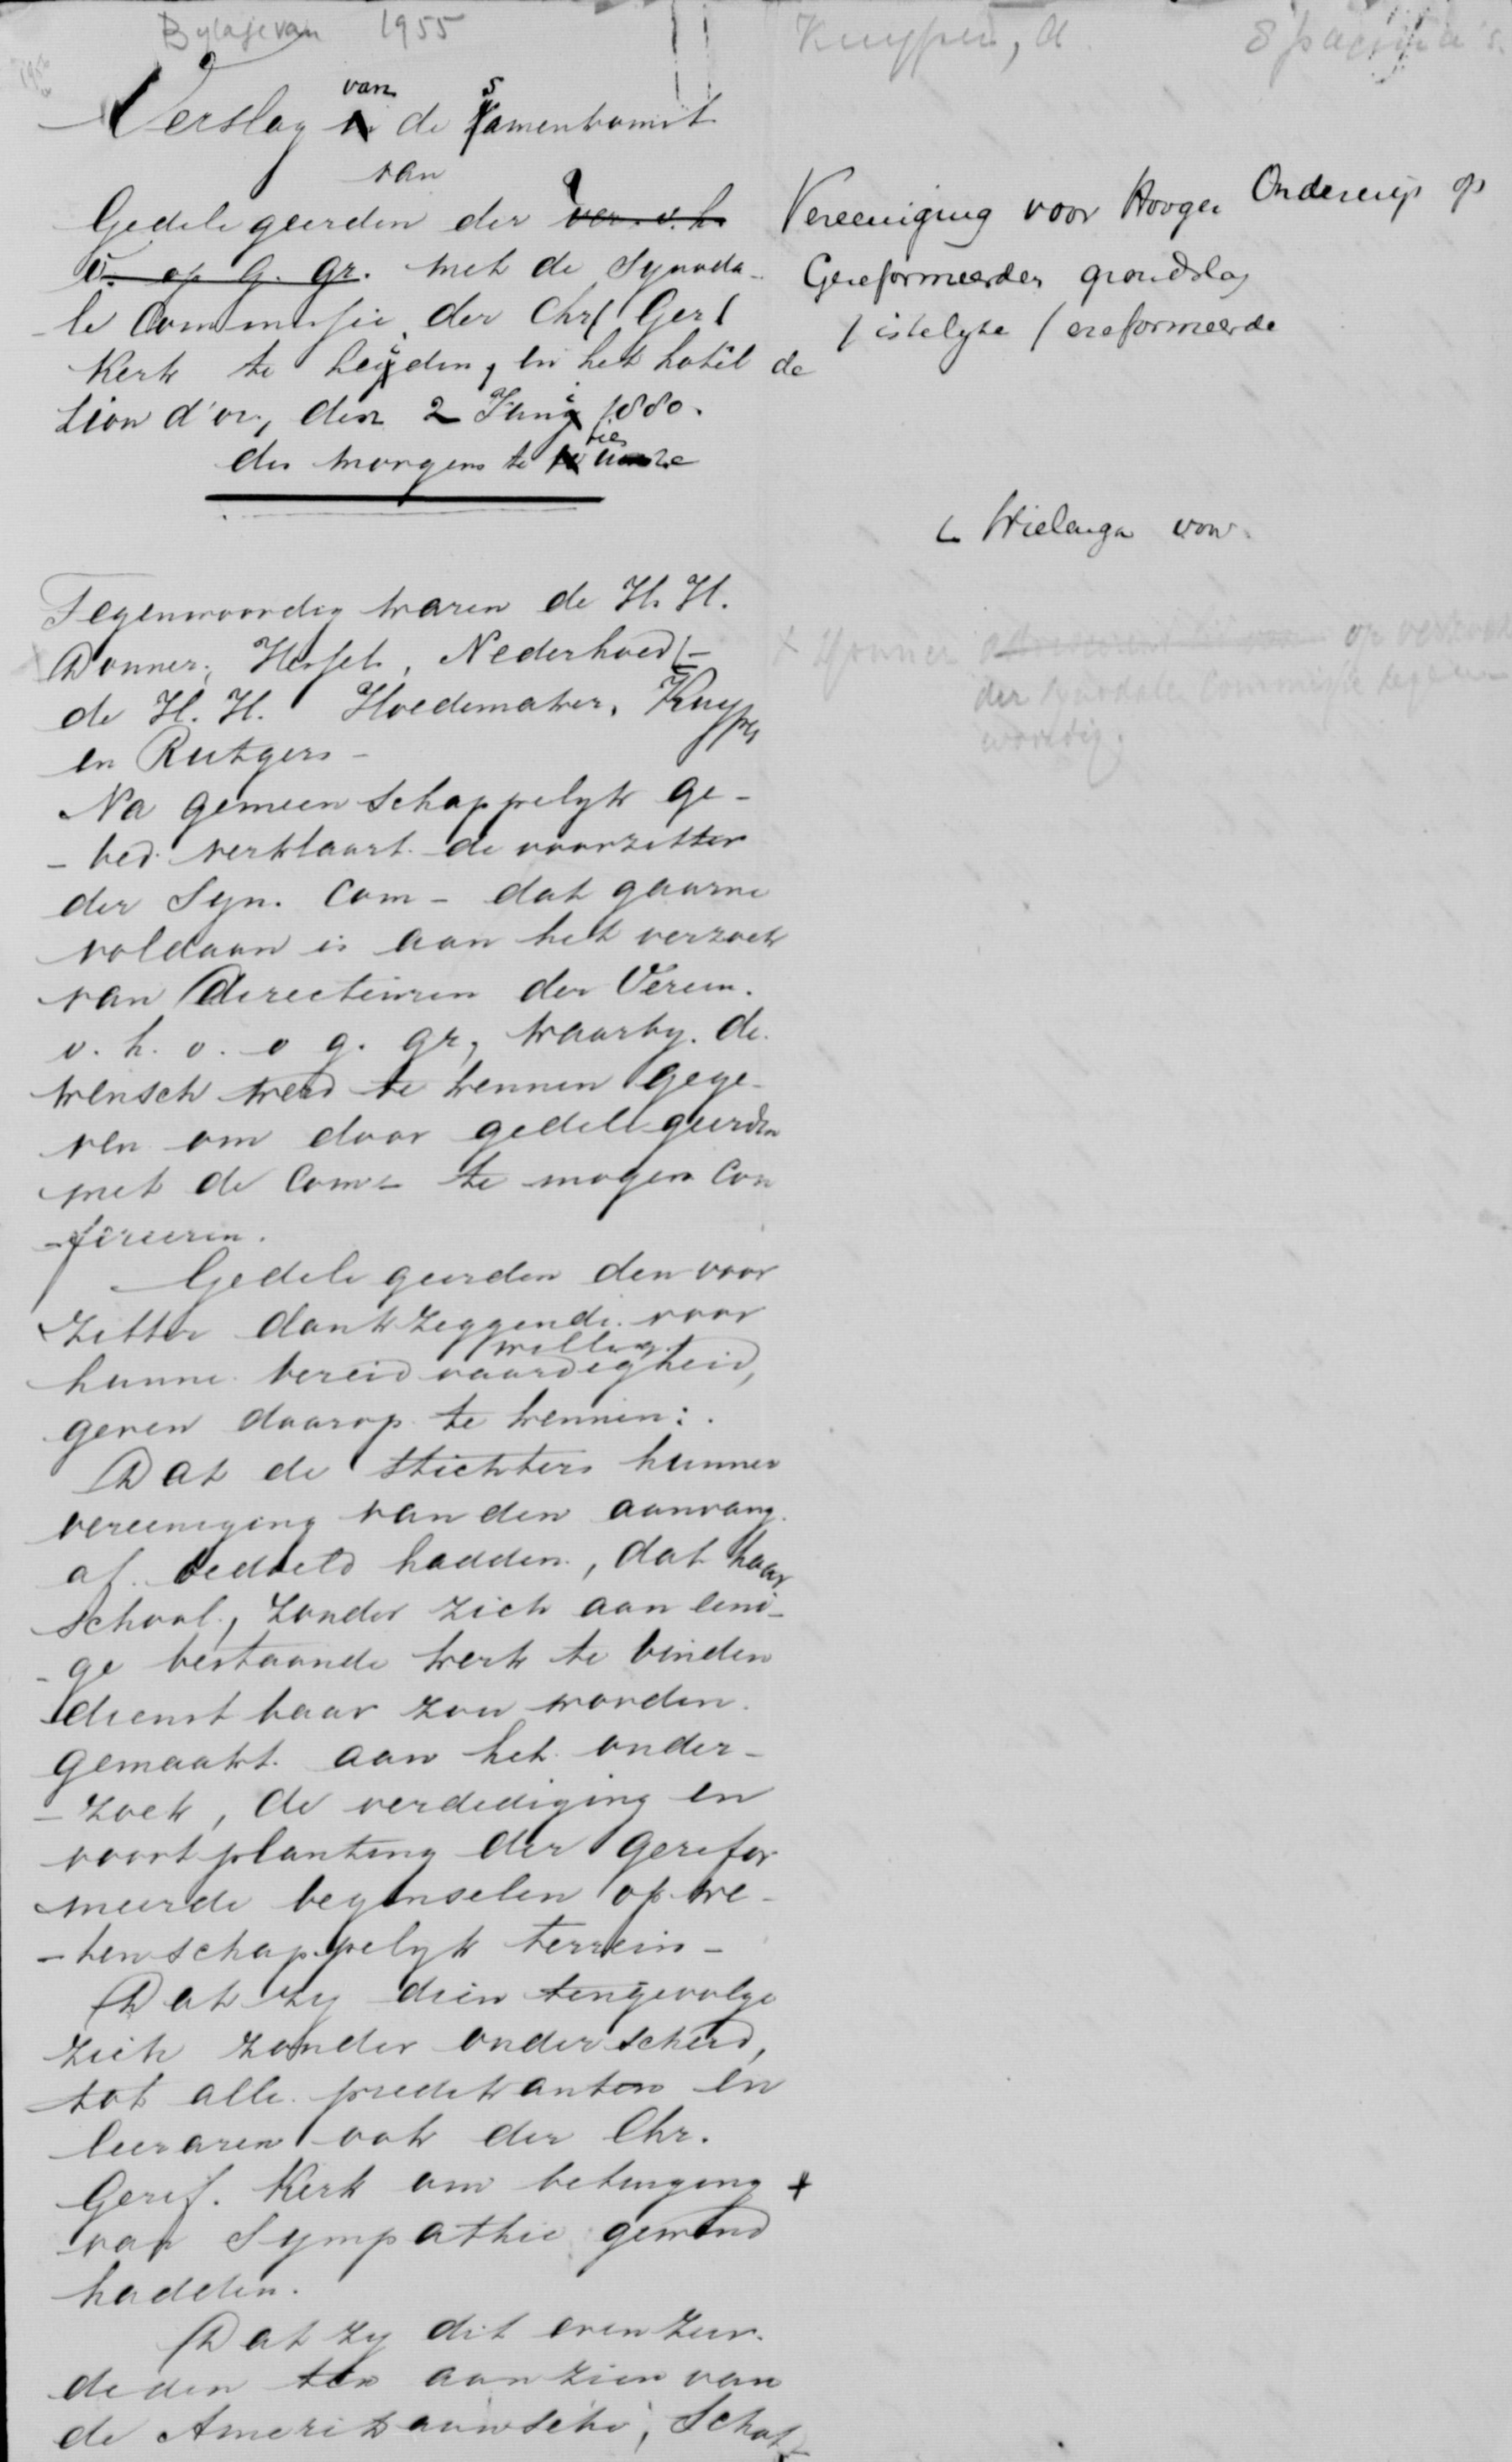 Bylage van 1955
Kuyper, A. 8 pagina's.
Verslag van de Samenkomst
van
Gedelegeerden der ver. v. h.
o. op G. gr. met de Synoda-
le Commissie der Chr. Ger.
Kerk te Leiden, in het hotel de
Lion d'or, den 2 Juni 1880.
des morgens te tien
Vereeniging voor Hooger Onderwijs op
Gereformeerden grondslag
istelyke / ereformeerde
Wielenga voor.
Tegenwoordig waren de H. H.
Donner, Hessels, Nederhoed
de H. H. Hoedemaker, Kuyper
en Rutgers -
Donner op verzoek
der Synodale Commissie tegen-
woordig.
Na gemeenschappelyk ge-
- bed verklaart de voorzitter
der Syn. Com - dat gaarne
voldaan is aan het verzoek
van Directeuren der Vereen.
v. h. o. o g. gr, waarby de
wensch werd te kennen gege-
ven om door gedelegeerden
met de Com - te mogen con
- fereeren.
Gedelegeerden den voor
zitter dankzeggende voor
willig
hunne bereidvaardigheid,
geven daarop te kennen:
Dat de stichters hunner
vereeniging van den aanvang
af bedoeld hadden, dat haar
school, zonder zich aan eeni-
- ge bestaande kerk te binden
dienstbaar zou worden
gemaakt aan het onder-
- zoek, de verdediging en
voortplanting der gerefor
meerde beginselen op we-
- tenschappelyk terrein -
Dat zy dien tengevolge
zich zonder onderscheid,
tot alle predikanten en
leeraren ook der Chr.
Geref. Kerk om betuiging +
van Sympathie gewend
hadden.
Dat zy dit evenzeer
deden ten aanzien van
de Amerikaansche, Schot-